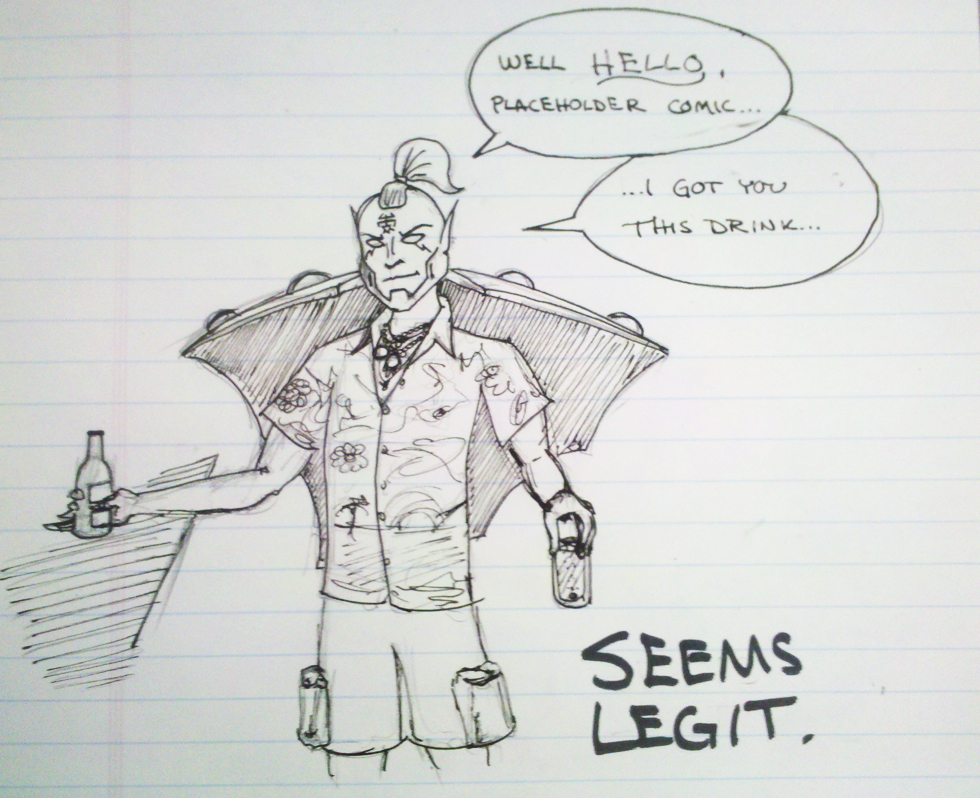 WELL HELLO,
PLACEHOLDER COMIC...
...I GOT YOU
THIS DRINK...
SEEMS
LEGIT.